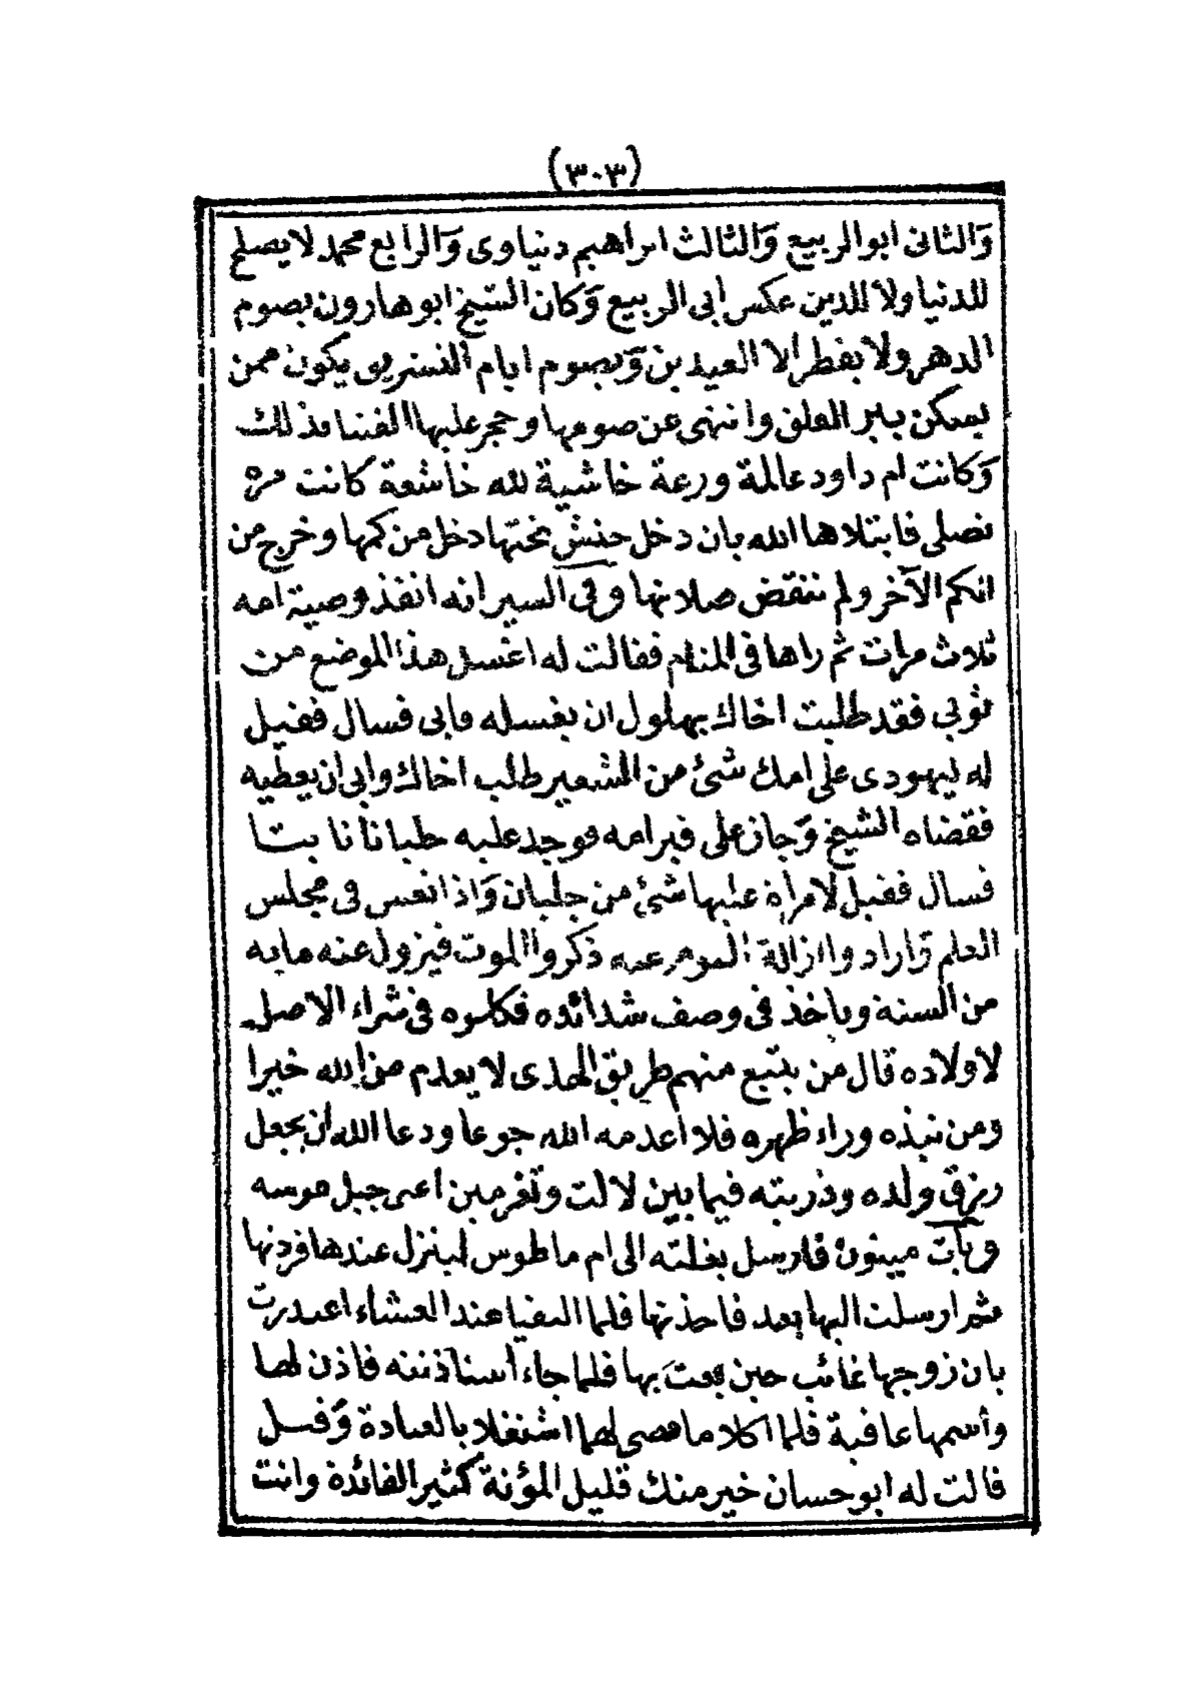 (٣٠٣)
والثانى ابو الربيع والثالث ابراهيم دنياوى والرابع محمد لا يصلح
للدنيا ولا للدين عكس ابى الربيع وكان الشيخ ابو هارون يصوم
الدهر ولا يفطر الا العيدين ويصوم ايام التشريق يكون ممن
يسكن ببير العلق وانتهى عن صومها وحجر عليها الفتيا بذلك
وكانت ام داود عالمة ورعة خاشية لله خاشعة كانت مرة
تصلى فابتلاها الله بان دخل حنش تحتها دخل من كمها وخرج من
انكم الآخر ولم تنقض صلاتها وفى السير انه انفذ وصية امه
ثلاث مرات ثم راها فى المنام فقالت له اغسل هذا الموضع من
ثوبى فقد طلبت اخاك بهلول ان يغسله فابى فسال فقيل
له ليهودى على امك شئ من الشعير طلب اخاك وابى ان يعطيه
فقضاه الشيخ وجاز على قبر امه فوجد عليه حلبانا نابتا
فسال فقيل لامراة عليها شئ من جلبان واذا نعس فى مجلس
العلم وارادوا ازالة النوم عنه ذكروا الموت فيزول عنه ما به
من السنة وياخذ فى وصف شدائده فكلموه فى شراء الاصل
لاولاده قال من يتبع منهم طريق الهدى لا يعدم من الله خيرا
ومن نبذه وراء ظهره فلا اعدمه الله جوعا ودعا الله ان يجعل
رزق ولده وذريته فيما بين لالت وتغرمين اعنى جبل نفوسه
وبات ميبنون فارسل بغلته الى ام ماطوس لينزل عندها فردتها
ثم ارسلت اليها بعد فاخذتها فلما التقيا عند العشاء اعتدرت
بان زوجها غائب حين بعث بها فلما جاء استاذنته فاذن لها
واسمها عافية فلما اكلا ما قضى لهما اشتغلا بالعبادة وقيل
قالت له ابو حسان خير منك قليل المؤنة كثير الفائدة وانت